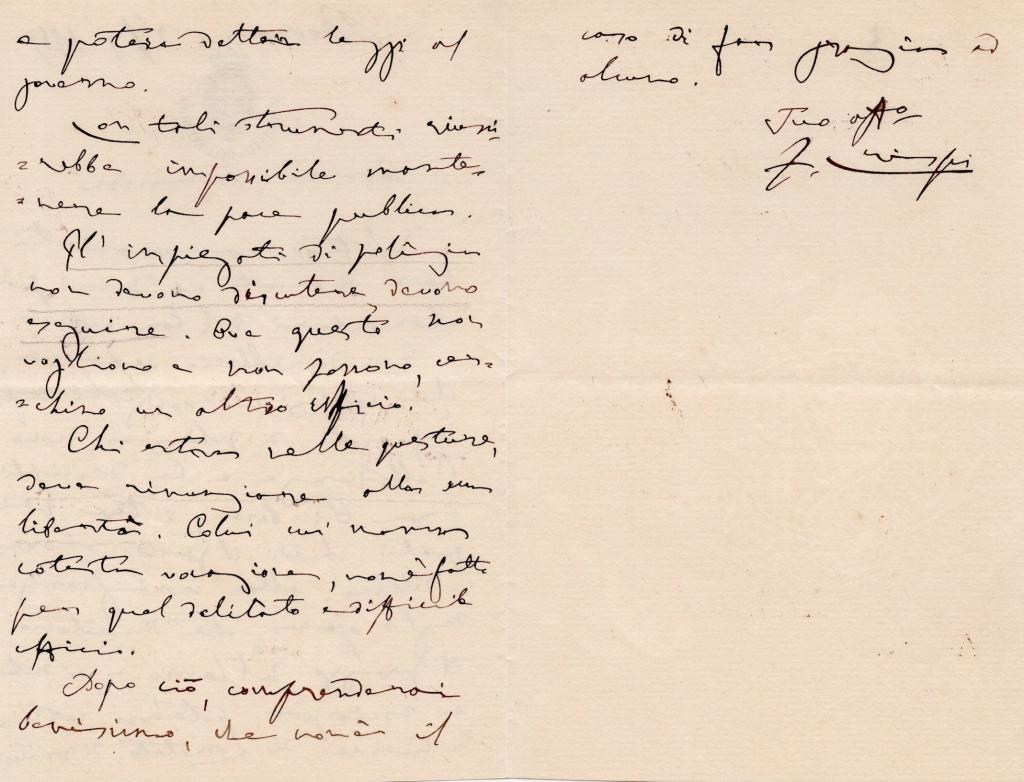 e poter dettar leggi al
governo.
Con tali strumenti riusci-
=rebbe impossibile mante=
=nere la pace publica.
Gl' impiegati di polizia
non devono discutere, devono
eseguire. Ove questo non
vogliono e non possono, cer=
=chino un altro ufficio.
Chi entra nelle questure,
deve rinunziare alla sua
libertà. Colui cui manca
cotesta vocazione, non è fatto
per quel delicato e difficile
ufficio.
Dopo ciò, comprenderai
benissimo, che non è il
caso di far grazia ad
alcuno.
Tuo affo
F. Crispi